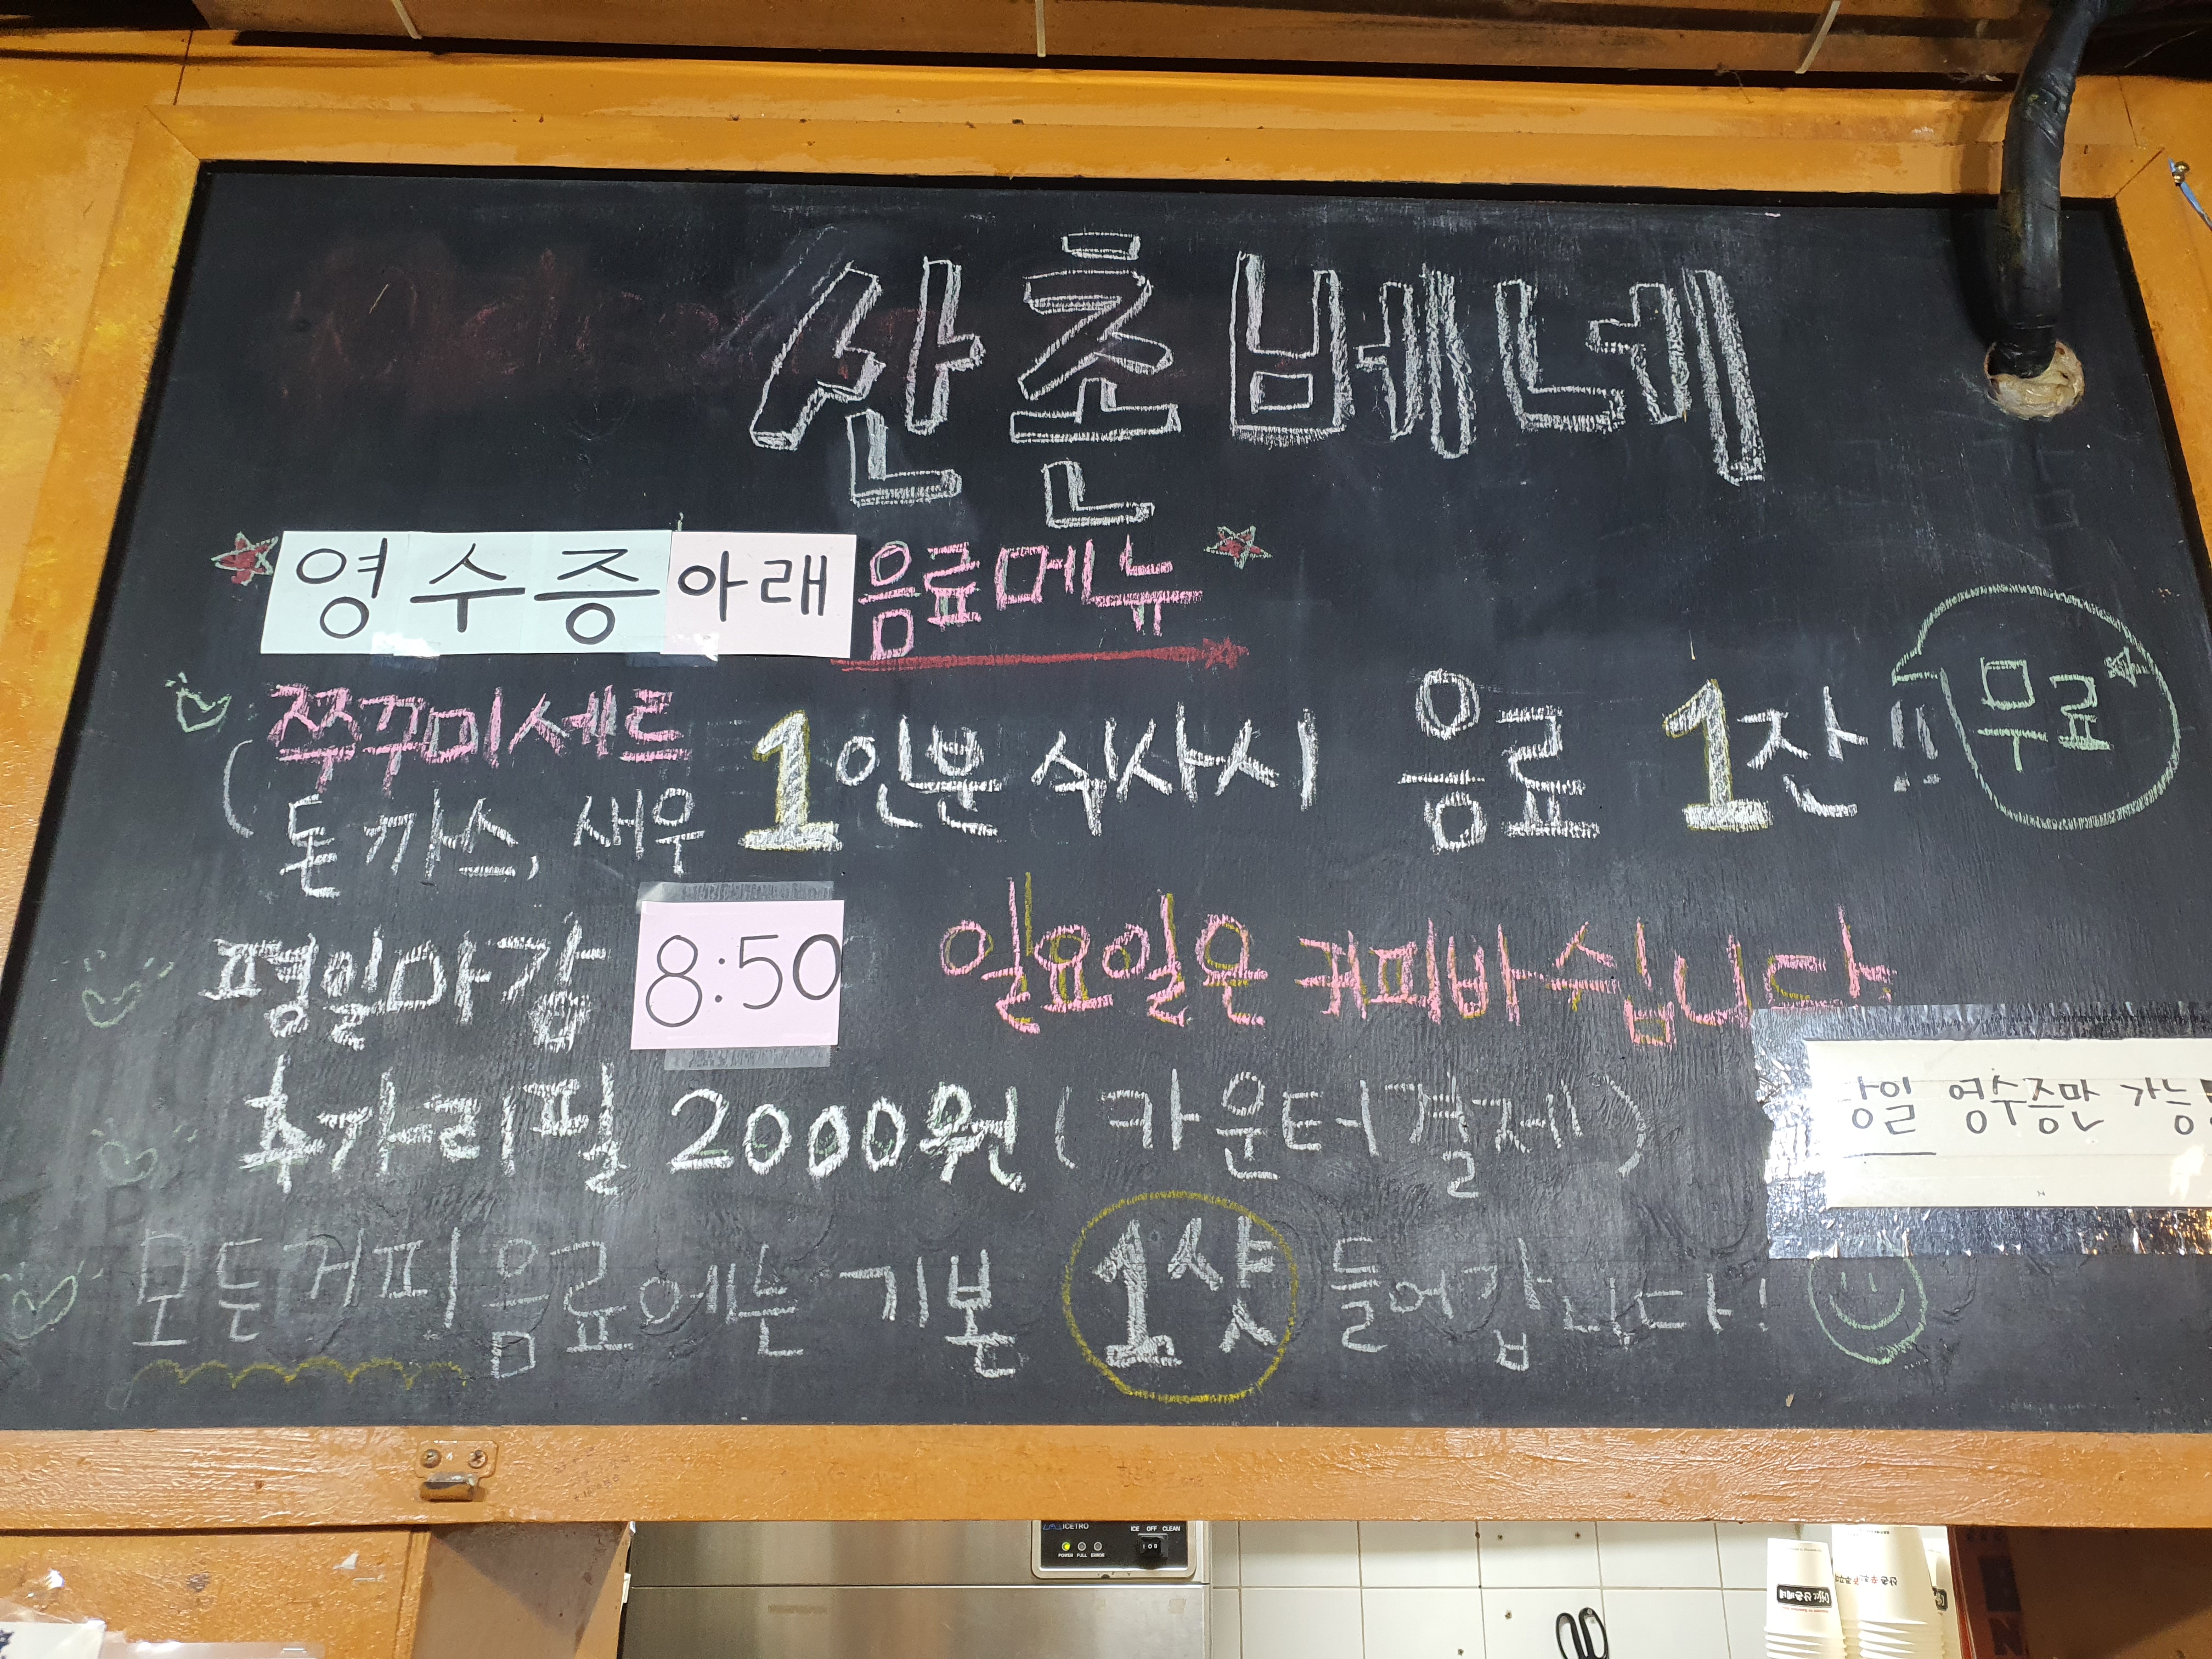 산촌베네
영수증 아래 음료메뉴
쭈꾸미세트
돈까스, 새우
1인분 식사시 음료 1잔!! 무료
평일마감 8:50 일요일은 커피바 쉽니다
추가리필 2000원 (카운터결제)
당일 영수증만 가능
모든커피 음료에는 기본 1샷 들어갑니다!
ICETRO
ICE OFF CLEAN
POWER FULL ERROR